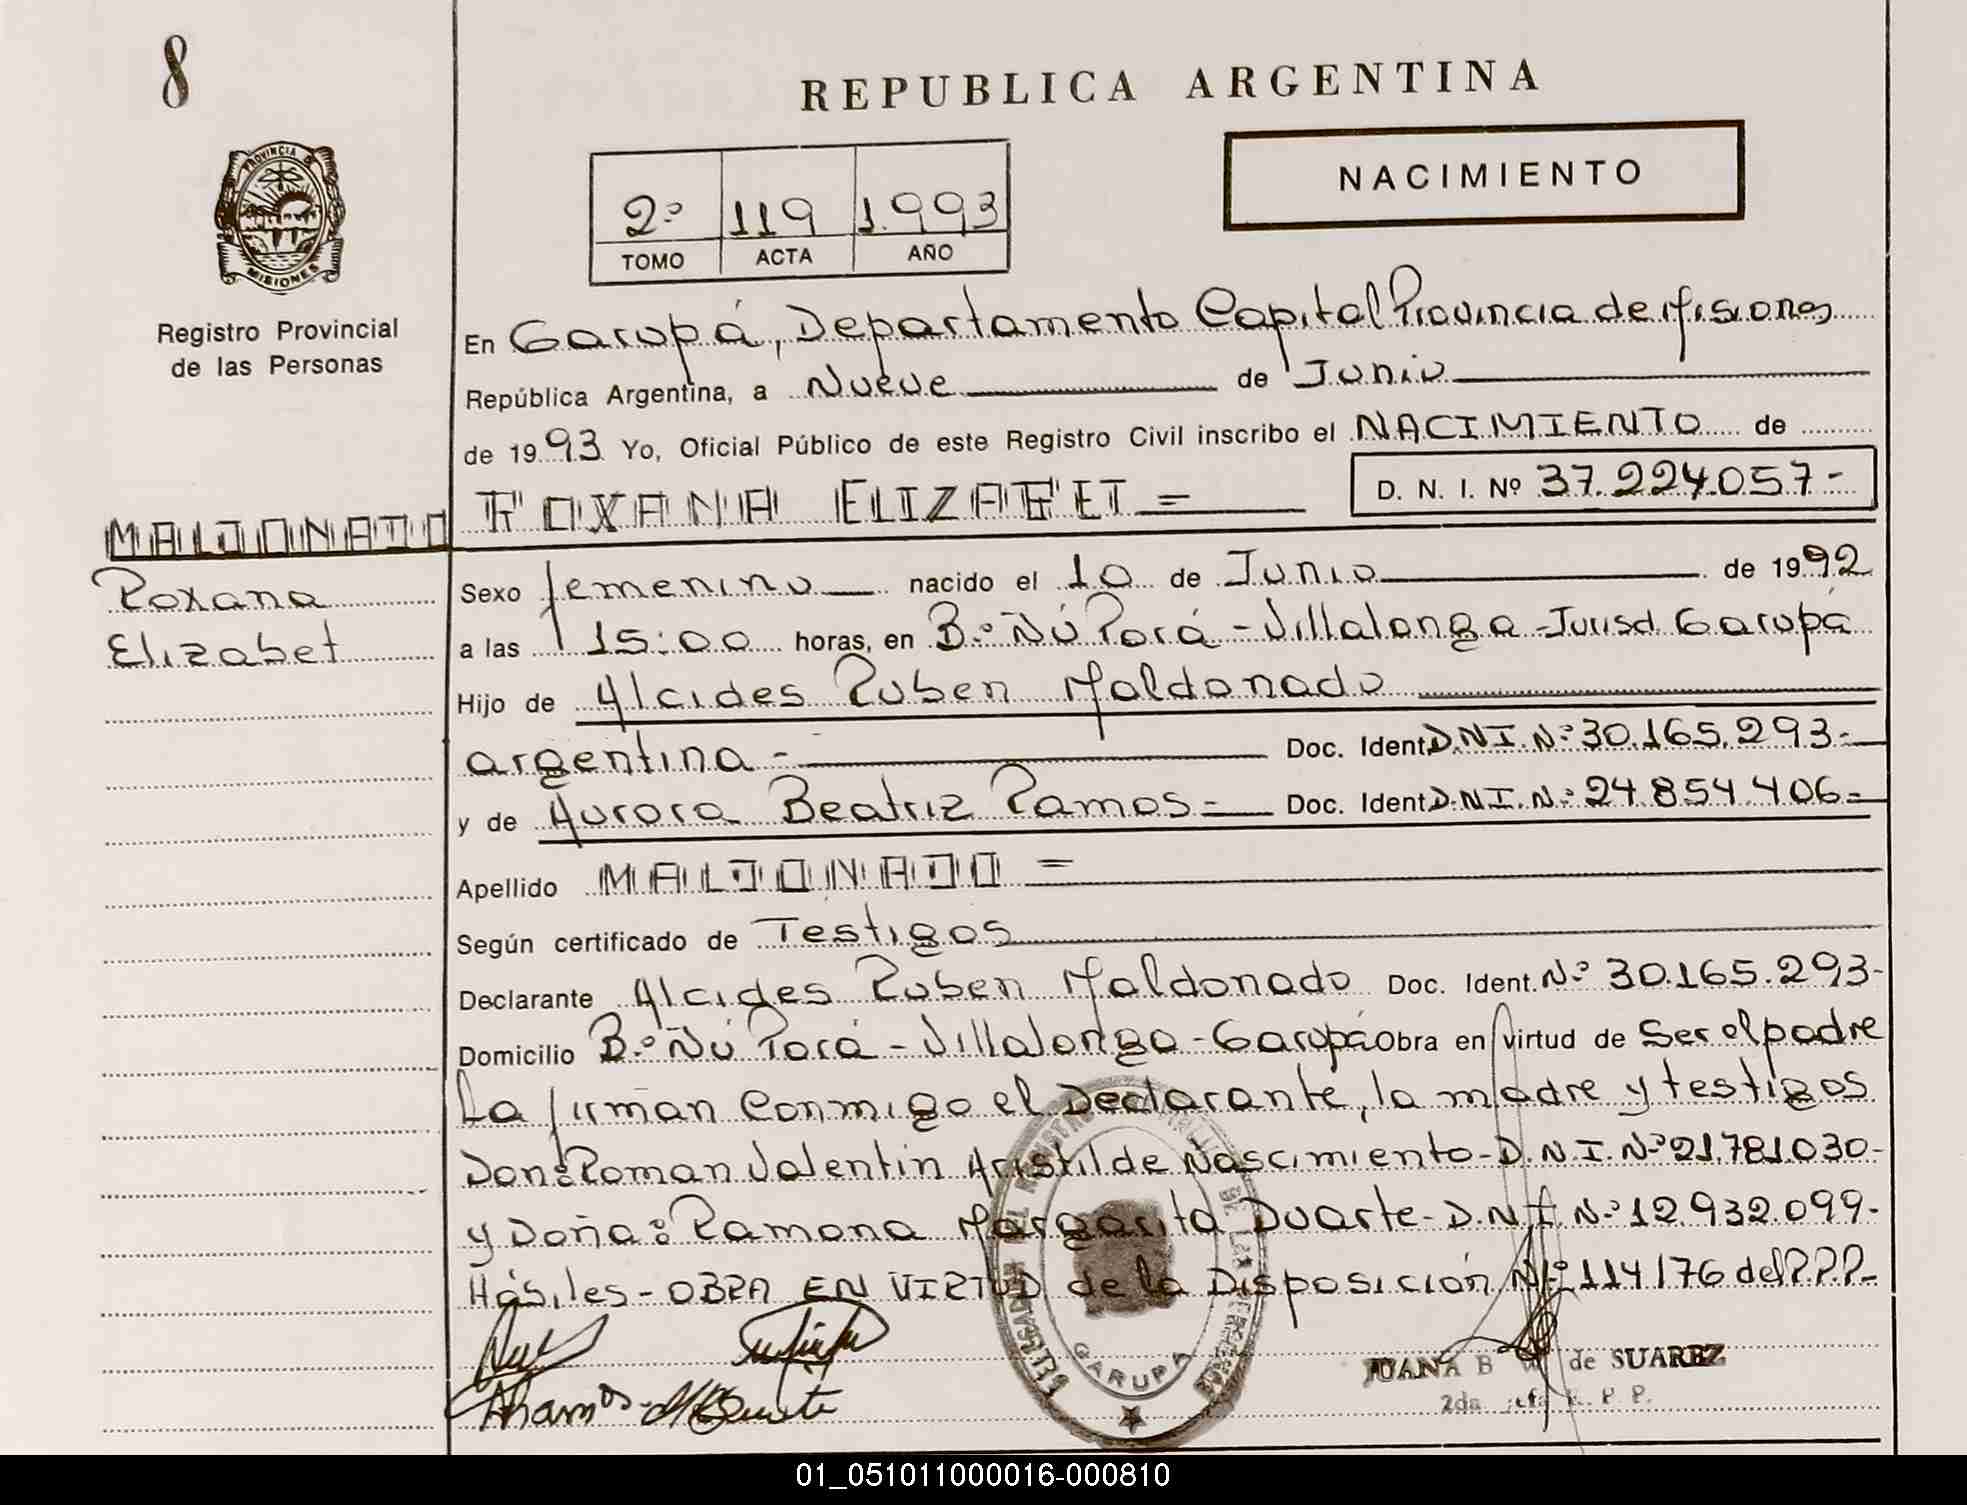 8
REPUBLICA ARGENTINA
NACIMIENTO
2º 119 1.993
TOMO ACTA AÑO
PROVINCIA DE MISIONES
Registro Provincial
de las Personas
En Garupá, Departamento Capital Provincia de Misiones
República Argentina, a Nueve de Junio
de 1993 Yo, Oficial Público de este Registro Civil inscribo el NACIMIENTO de
ROXANA ELIZABET = D. N. I. Nº 37.224.057-
MALDONADO
Roxana
Elizabet
Sexo femenino nacido el 10 de Junio de 1992
a las 15:00 horas, en B.º Ñú Porá - Villalonga - Jurisd. Garupá
Hijo de Alcides Ruben Maldonado
argentina - Doc. Ident. D.N.I. N.º 30.165.293-
y de Aurora Beatriz Ramos = Doc. Ident. D.N.I. N.º 24.854.406=
Apellido MALDONADO =
Según certificado de Testigos
Declarante Alcides Ruben Maldonado Doc. Ident. N.º 30.165.293-
Domicilio B.º Ñú Porá - Villalonga - Garupá Obra en virtud de Ser el padre
La firman conmigo el Declarante, la madre y testigos
Don: Roman Valentin Aristilde Nascimiento - D.N.I. Nº 21.781.030-
y Doña: Ramona Margarita Duarte - D.N.I. N.º 12.932.099-
Hábiles - OBRA EN VIRTUD de la Disposición Nº 114/76 del R.P.P.-
GARUPA
JUANA B de SUAREZ
2da Jefa R. P. P.
01_051011000016-000810